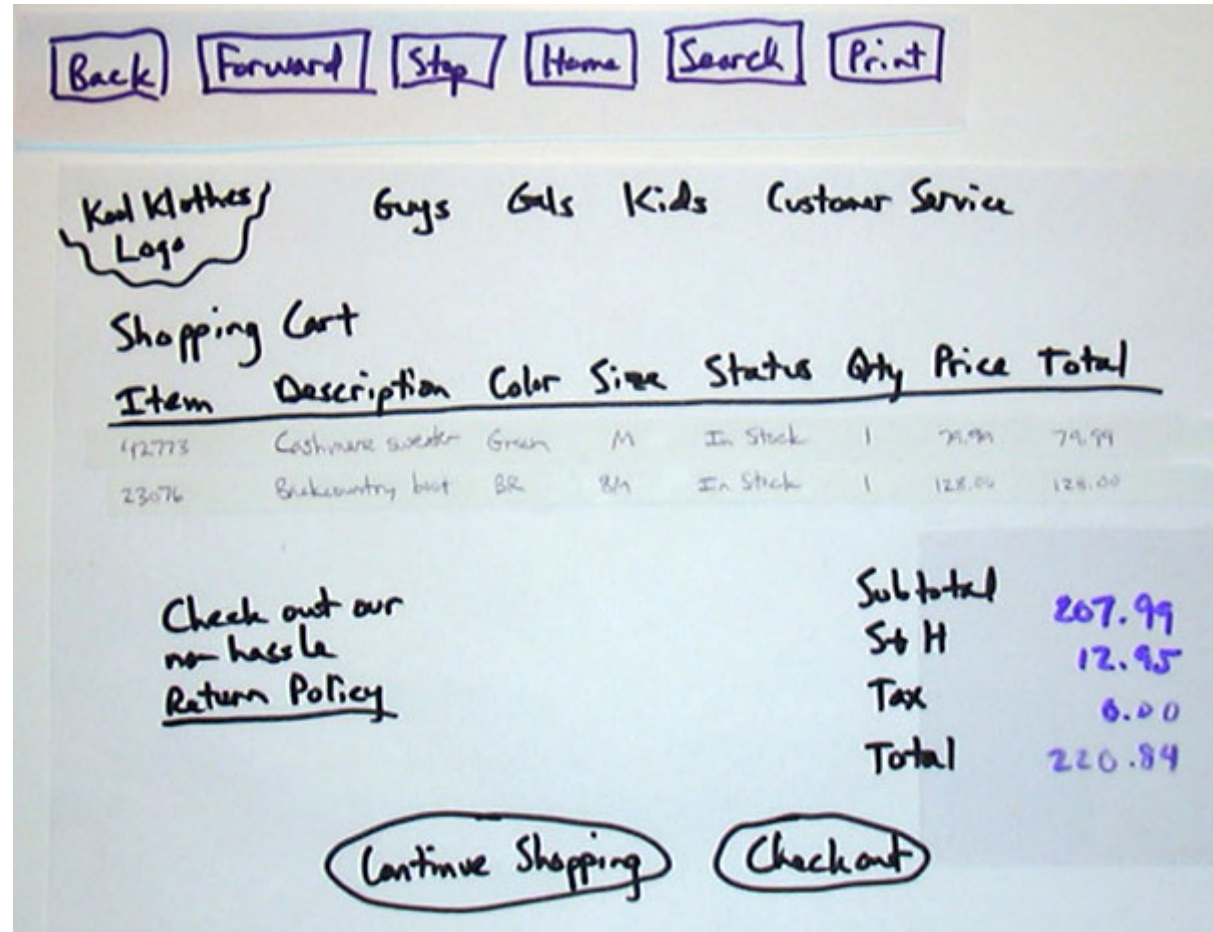 Back Forward Stop Home Search Print
Kool Klothes Guys Gals Kids Customer Service
Logo
Shopping Cart
Item Description Color Size Status Qty Price Total
42773 Cashmere sweater Green M In Stock 1 79.99 79.99
23076 Backcountry boot BR 8M In Stock 1 128.00 128.00
Check out our Subtotal 207.99
no-hassle S+H 12.95
Return Policy Tax 0.00
Total 220.94
Continue Shopping Checkout